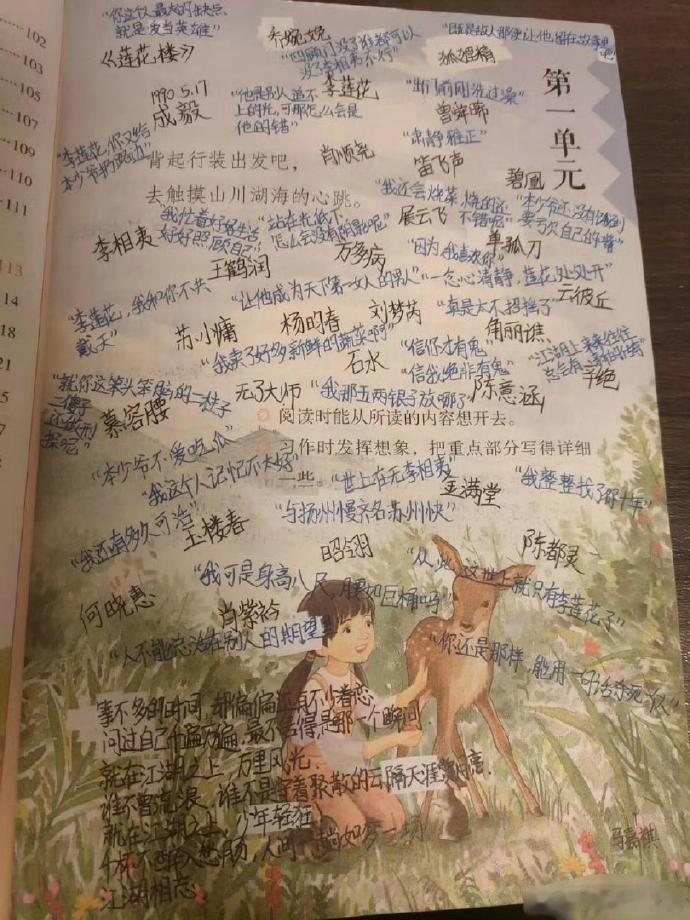 102
103
105
107
109
110
111
113
14
18
21
第一单元
"你这个人最大的缺点
就是爱当英雄"
《莲花楼》
乔婉娩
"四顾门没了谁都可以
没了李相夷不行"
"既是故人那便让他留在故事里
吧"
狐狸精
1990.5.17
成毅
"他是别人追不
上的光,可那怎么会是
他的错"
李莲花
"出门前刚洗过澡"
曾舜晞
"李莲花,你又给
本少爷
肖顺尧
"肃静雅正"
笛飞声
碧凰
背起行装出发吧,
去触摸山川湖海的心跳。
"我还会烧菜,烧的还
不错呢"
"本少爷还没有沦落到
要亏自己的牛嘴"
李相夷
"我忙着好好生活
好好照顾自己"
"站在光底下,
怎么会没有阴影呢"
展云飞
王鹤润
方多病
"因为我喜欢你"
单孤刀
"李莲花,我和你不共
戴天"
"让他成为天下第一女人的男人"
"一念心清静,莲花处处开"
云彼丘
苏小慵
杨昀春
刘梦芮
"真是太不招摇了"
角丽谯
"我卖了好多新鲜的蔬菜啊"
石水
"信你才有鬼"
"信我绝非有鬼"
"江湖上来来往往
总会有
辛绝
"就你这笨头笨脑的二柱子
二傻子
还做刑
探呢"
慕容腰
无了大师
"我那五两银子放哪了"
陈意涵
阅读时能从所读的内容想开去。
习作时发挥想象,把重点部分写得详细
一些。
"本少爷不爱吃瓜"
"我这个人记忆不太好"
"世上在无李相夷"
王满堂
"我整整找了你十年"
"我还有多久可活"
玉楼春
"与扬州慢齐名苏州快"
昭翎
陈都灵
"从此,这世上就只有李莲花了"
何晓惠
"我可是身高八尺,腰如巨桶吗"
肖紫衿
"人不能总活在别人的期望里"
"你还是那样,能用一句话夺死人"
事不多的时间,却偏偏还有不少眷恋
问过自己千遍万遍,最不舍得是那一个瞬间.
就在江湖之上,万里风光.
谁不曾流浪,谁不是守着聚散的云隔天涯的离.
就在江湖之上,少年轻狂
千杯不醉入愁肠,人间一趟如梦一场
江湖相忘
马嘉祺